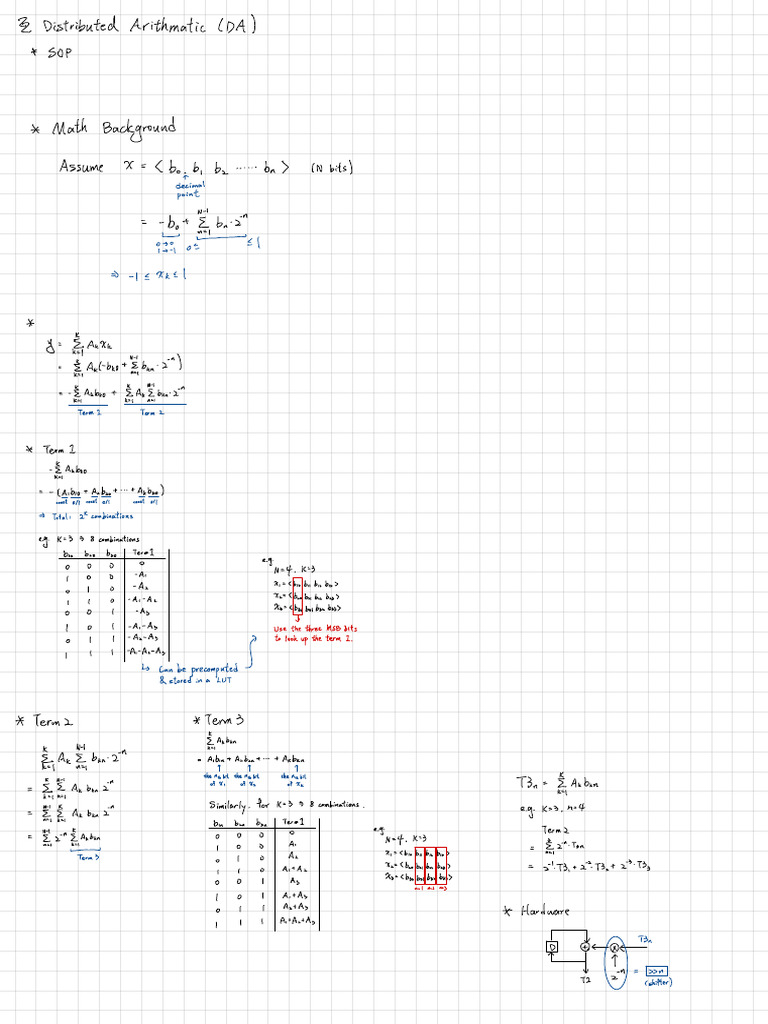 Distributed Arithmatic (DA)
* SOP
* Math Background
Assume x = < b₀. b₁ b₂ ...... bₙ > (N bits)
↑
decimal
point
= -b₀ + Σ_{n=1}^{N-1} bₙ·2⁻ⁿ
0→0
1→-1
0≤ ≤1
⇒ -1 ≤ xₖ ≤ 1
*
y = Σ_{k=1}^{K} Aₖxₖ
= Σ_{k=1}^{K} Aₖ(-bₖ₀ + Σ_{n=1}^{N-1} bₖₙ·2⁻ⁿ)
= -Σ_{k=1}^{K} Aₖbₖ₀ + Σ_{k=1}^{K} Aₖ Σ_{n=1}^{N-1} bₖₙ·2⁻ⁿ
Term 1 Term 2
* Term 1
-Σ_{k=1}^{K} Aₖbₖ₀
= -(A₁b₁₀ + A₂b₂₀ + ... + Aₖbₖ₀)
const 0/1 const 0/1 const 0/1
⇒ Total: 2ᴷ combinations
e.g. K=3 ⇒ 8 combinations
b₁₀ b₂₀ b₃₀ Term 1
0 0 0 0
1 0 0 -A₁
0 1 0 -A₂
1 1 0 -A₁-A₂
0 0 1 -A₃
1 0 1 -A₁-A₃
0 1 1 -A₂-A₃
1 1 1 -A₁-A₂-A₃
↳ Can be precomputed
& stored in a LUT
e.g.
N=4, K=3
x₁=<b₁₀ b₁₁ b₁₂ b₁₃>
x₂=<b₂₀ b₂₁ b₂₂ b₂₃>
x₃=<b₃₀ b₃₁ b₃₂ b₃₃>
Use the three MSB bits
to look up the term 1.
* Term 2
Σ_{k=1}^{K} Aₖ Σ_{n=1}^{N-1} bₖₙ·2⁻ⁿ
= Σ_{k=1}^{K} Σ_{n=1}^{N-1} Aₖ bₖₙ 2⁻ⁿ
= Σ_{n=1}^{N-1} Σ_{k=1}^{K} Aₖ bₖₙ 2⁻ⁿ
= Σ_{n=1}^{N-1} 2⁻ⁿ Σ_{k=1}^{K} Aₖbₖₙ
Term 3
* Term 3
Σ_{k=1}^{K} Aₖbₖₙ
= A₁b₁ₙ + A₂b₂ₙ + ... + Aₖbₖₙ
↑ ↑ ↑
the nth bit the nth bit the nth bit
of x₁ of x₂ of xₖ
Similarly. for K=3 ⇒ 8 combinations.
b₁ₙ b₂ₙ b₃ₙ Term 1
0 0 0 0
1 0 0 A₁
0 1 0 A₂
1 1 0 A₁+A₂
0 0 1 A₃
1 0 1 A₁+A₃
0 1 1 A₂+A₃
1 1 1 A₁+A₂+A₃
e.g.
N=4, K=3
x₁=<b₁₀ b₁₁ b₁₂ b₁₃>
x₂=<b₂₀ b₂₁ b₂₂ b₂₃>
x₃=<b₃₀ b₃₁ b₃₂ b₃₃>
n=1 n=2 n=3
T3ₙ = Σ_{k=1}^{K} Aₖbₖₙ
e.g. K=3, n=4
Term 2
= Σ_{n=1}^{3} 2⁻ⁿ·T3ₙ
= 2⁻¹·T3₁ + 2⁻²·T3₂ + 2⁻³·T3₃
* Hardware
D + × T3ₙ
T2 2⁻ⁿ = >>n
(shifter)